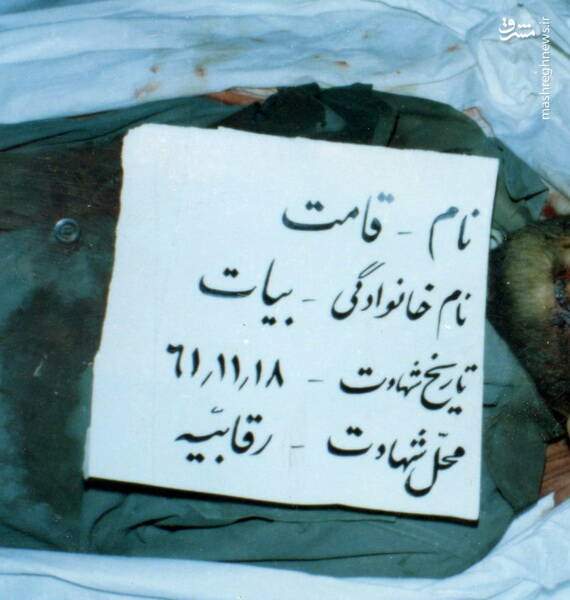 مشرق
mashreghnews.ir
نام - قامت
نام خانوادگی - بیات
تاریخ شهادت - ۶۱٫۱۱٫۱۸
محل شهادت - رقابیّه